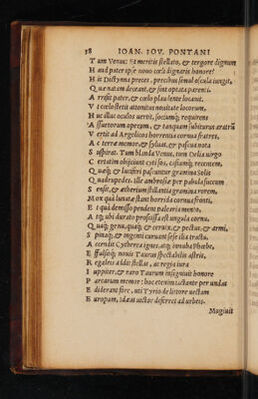 38 IOAN. IOV. PONTANI
T um Venus: Et meritis stellato, & tergore dignum
H aud pater ipse nouo cœlo dignaris honore?
H is Dictynna preces, precibus simul oscula iungit,
Q uæ natam deceant, & sint optata parenti.
A rrisit pater, & cœlo plaudente locauit.
V t cœlo stetit attonitus nouitate locorum,
H uc illuc oculos uertit, sociumq; requirens
A ssuetorum operum, & tanquam subiturus aratrum
V ertit ad Argolicos horrentia cornua fratres,
A c terræ memor, & syluas, & pascua nota
S uspirat. Tum blanda Venus, tum Delia uirgo
C ertatim obijciunt cytisos, casiamq; recentem,
Q uæq; & luniferi pascuntur gramina Solis
Q uadrupedes. Ille ambrosiæ per pabula succum
S ensit, & ætherium stillantia gramina rorem,
M ox quà lunatæ stant horrida cornua fronti,
E t quà demisso pendent palearia mento,
A tq; ubi durato proscissa est ungula cornu,
Q uaq; genu, quaq; & ceruix, & pectus, & armi,
S pinaq;, & ingenti curuant sese ilia tractu,
A ccendit Cytherea ignes. atq; inouba Phœbe,
E ffulsitq; nouis Taurus spectabilis astris.
R egales addit stellas, ac regia iura
I uppiter, & raro Taurum insigniuit honore
P arcarum memor: hoc etenim iactante per undas
E diderant fore, uti Tyrio de litore uectam
E uropam, Idæas uector deferret ad urbeis.
Magiuit